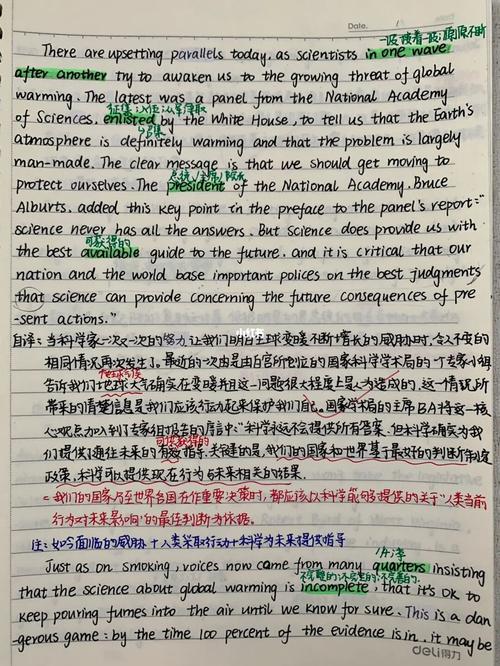 Date.
一波接着一波;源源不断
There are upsetting parallels today, as scientists in one wave
after another try to awaken us to the growing threat of global
warming. The latest was a panel from the National Academy
征集;入伍;从军;争取
of Sciences, enlisted by the White House, to tell us that the Earth's
atmosphere is definitely warming and that the problem is largely
man-made. The clear message is that we should get moving to
总统/主席/院长
protect ourselves. The president of the National Academy, Bruce
Alburts, added this key point in the preface to the panel's report:"
science never has all the answers. But science does provide us with
可获得的
the best available guide to the future, and it is critical that our
nation and the world base important polices on the best judgments
that science can provide concerning the future consequences of pre
-sent actions."
小红书
自译:当科学家一次又一次的努力,让我们明白全球变暖不断增长的威胁时,令人不安的
相同情况再次发生了。最近的一次由是由白宫所的国家科学学术局的一个专家小组
告诉我们:地球大气确实在变暖并且这一问题很大程度上是人为造成的,这一情况所
带来的清楚信息是我们应该行动起来保护我们自己。国家学术局的主席BA将这一核
心观点加入到了专家组报告的序言中"科学永远不会提供所有答案,但科学确实为我
可供获得的
们提供了通往未来的有效指导,关键的是,我们的国家和世界基于最好的判断所制定
政策,科学可以提供现在行为与未来相关的结果.
=我们的国家乃至世界各国在作重要决策时,都应该以科学能够提供的关于"人类当前
行为对未来影响"的最佳判断为依据。
注:如今面临的威胁+人类采取行动+科学为未来提供指导
Just as on smoking, voices now came from many quarters insisting
不完整的;不完全的;不完善的
that the science about global warming is incomplete, that it's OK to
keep pouring fumes into the air until we know for sure. This is a dan
-gerous game: by the time 100 percent of the evidence is in, it may be
deli得力